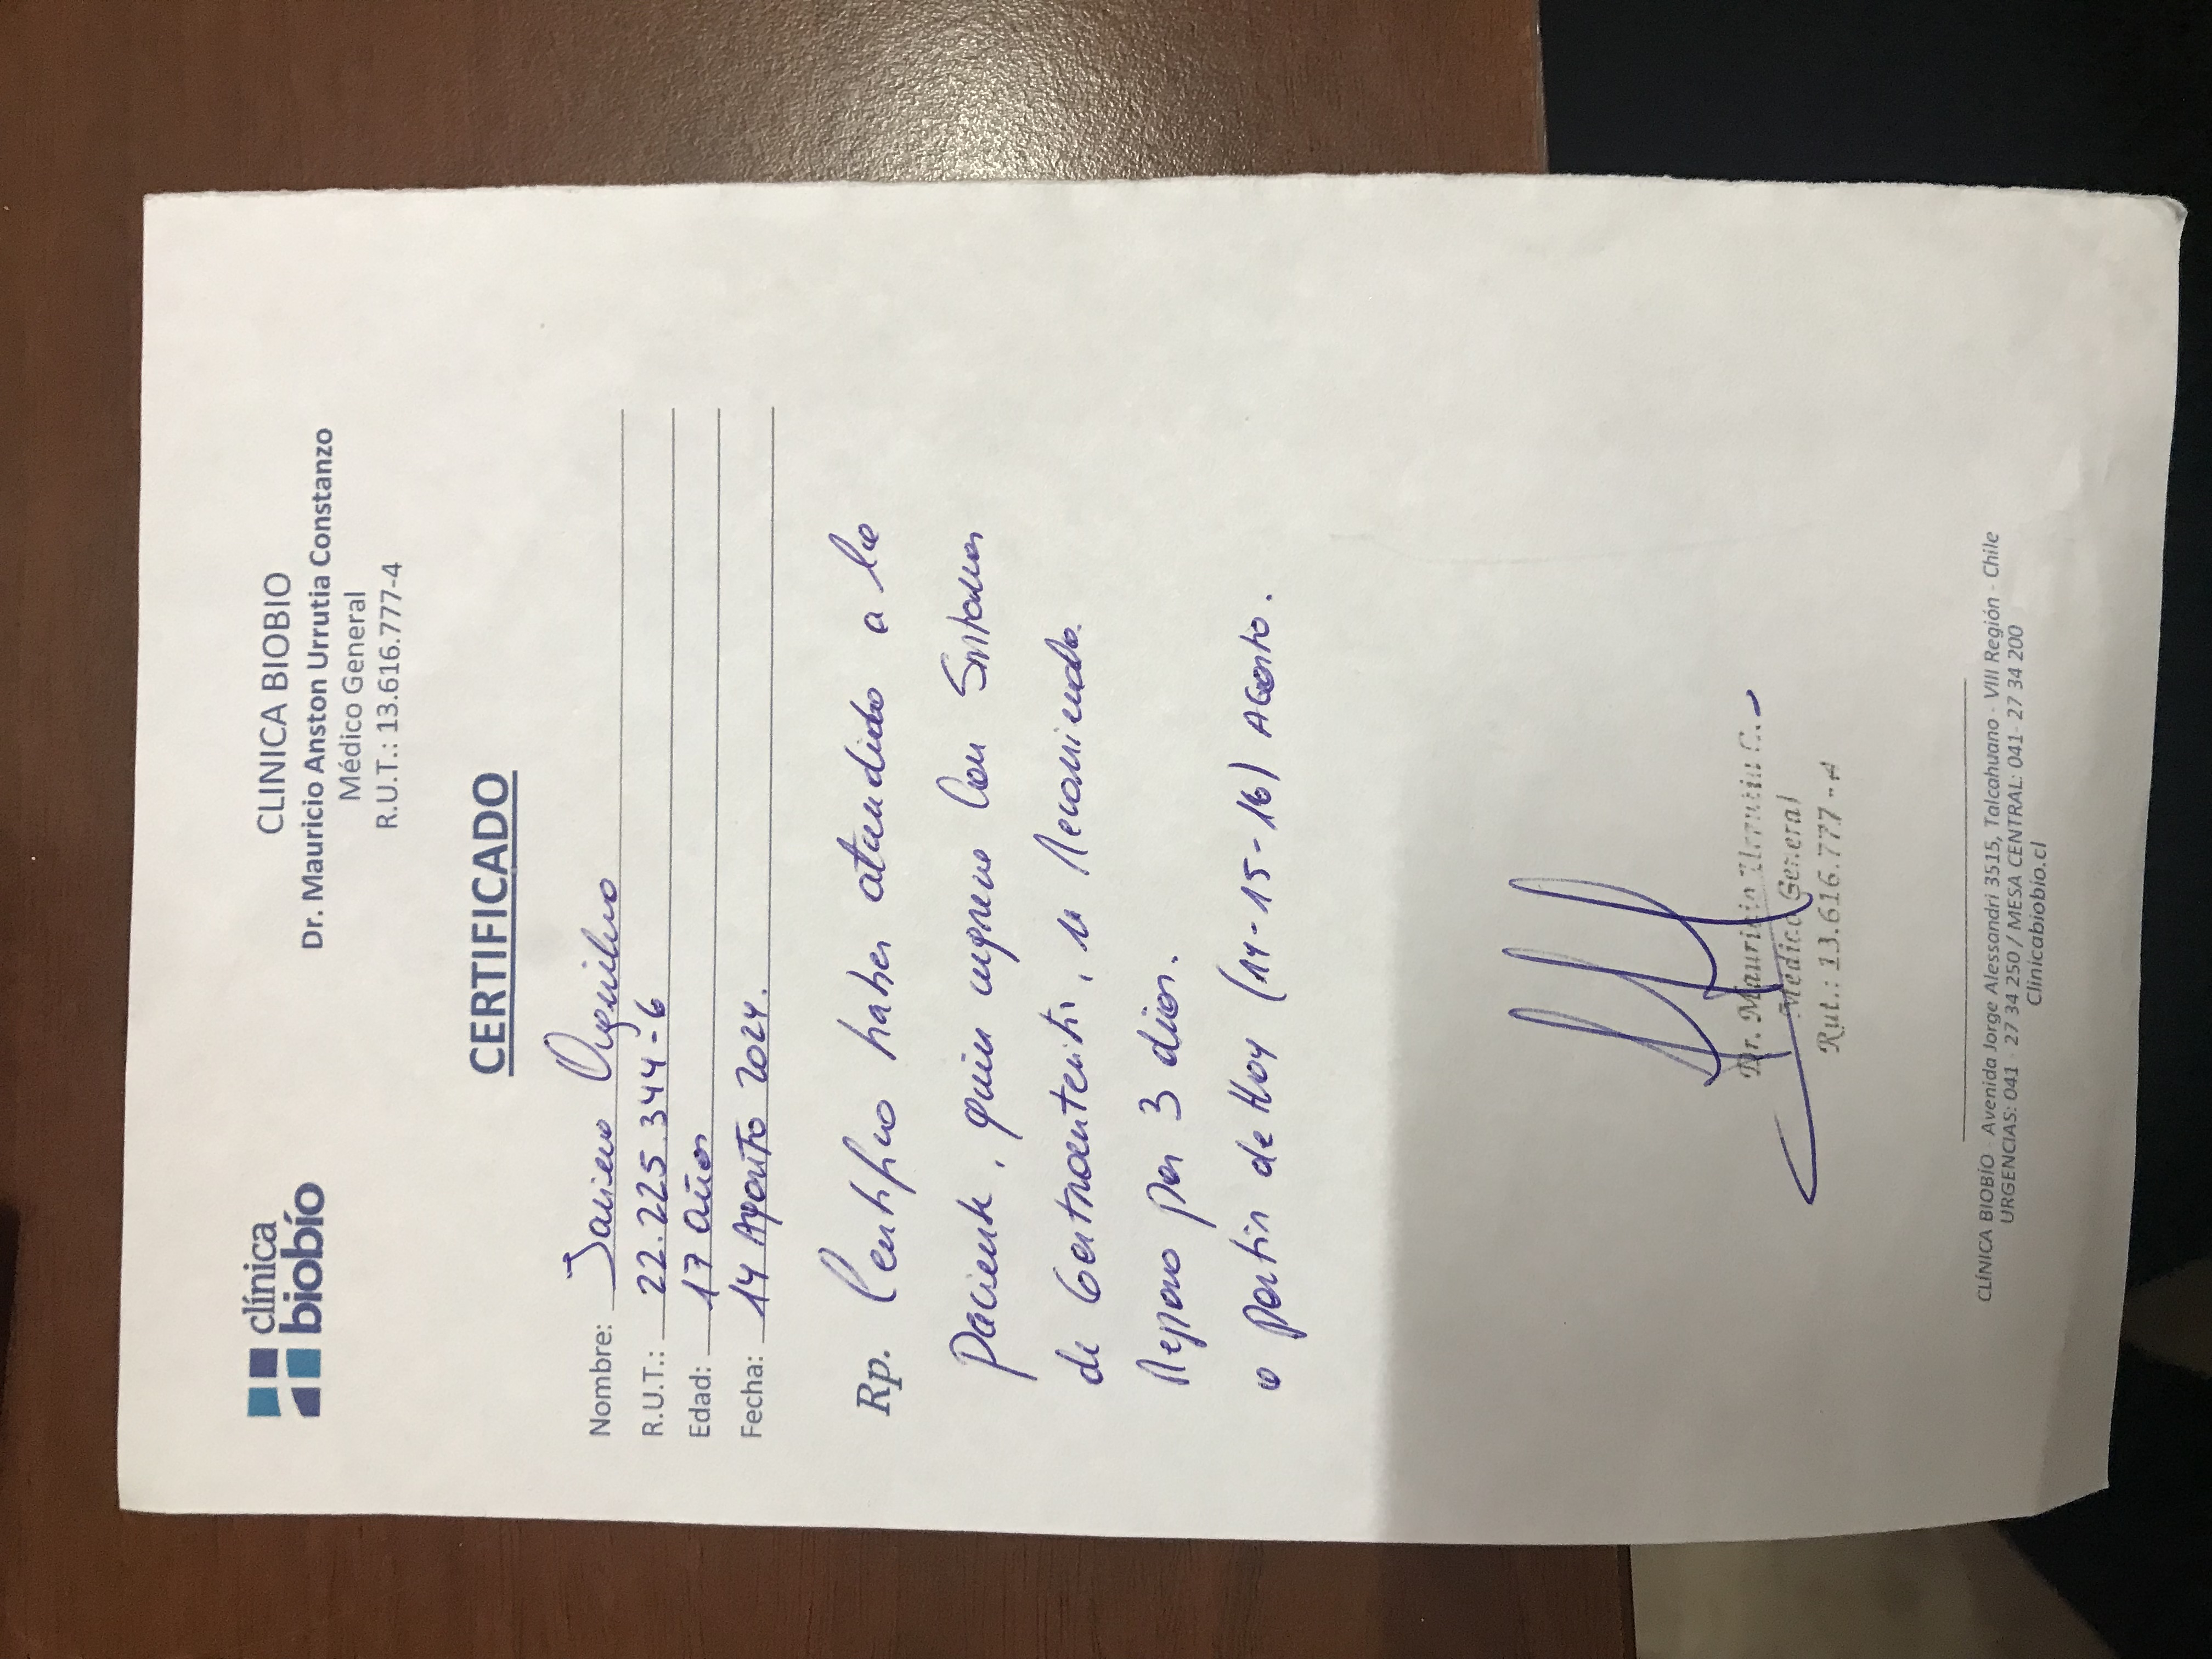 clínica
biobío
CLINICA BIOBIO
Dr. Mauricio Anston Urrutia Constanzo
Médico General
R.U.T.: 13.616.777-4
CERTIFICADO
Nombre:
R.U.T.: 22.225.344-6
Edad: 17 años
Fecha: 14 Agosto 2024.
Rp. Certifico haber atendido a la
Paciente, quien ingreso con Sintomas
de Gastroenteritis, se Recomienda
Reposo por 3 dias.
a partir de Hoy (14-15-16) AGosto.
Dr. Mauricio Urrutia C.
Medico General
Rut.: 13.616.777-4
CLÍNICA BIOBÍO - Avenida Jorge Alessandri 3515, Talcahuano - VIII Región - Chile
URGENCIAS: 041 - 27 34 250 / MESA CENTRAL: 041- 27 34 200
Clinicabiobio.cl